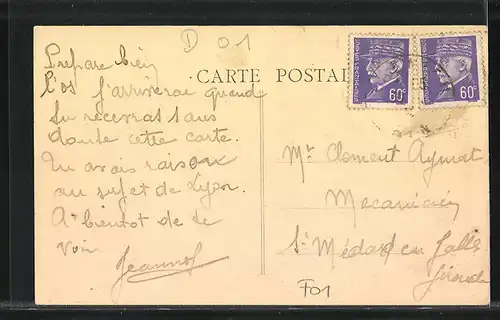 D 01
CARTE POSTAL
60c
60c
Prepare bien
l'os j'arriverai quand
tu recevras sans
doute cette carte.
Tu avais raison
au sujet de Lyon.
A bientot de te
voir
Jeannot
Mr Clement Aymat
Mecanicien
St Médard en Jalles
Gironde
F01